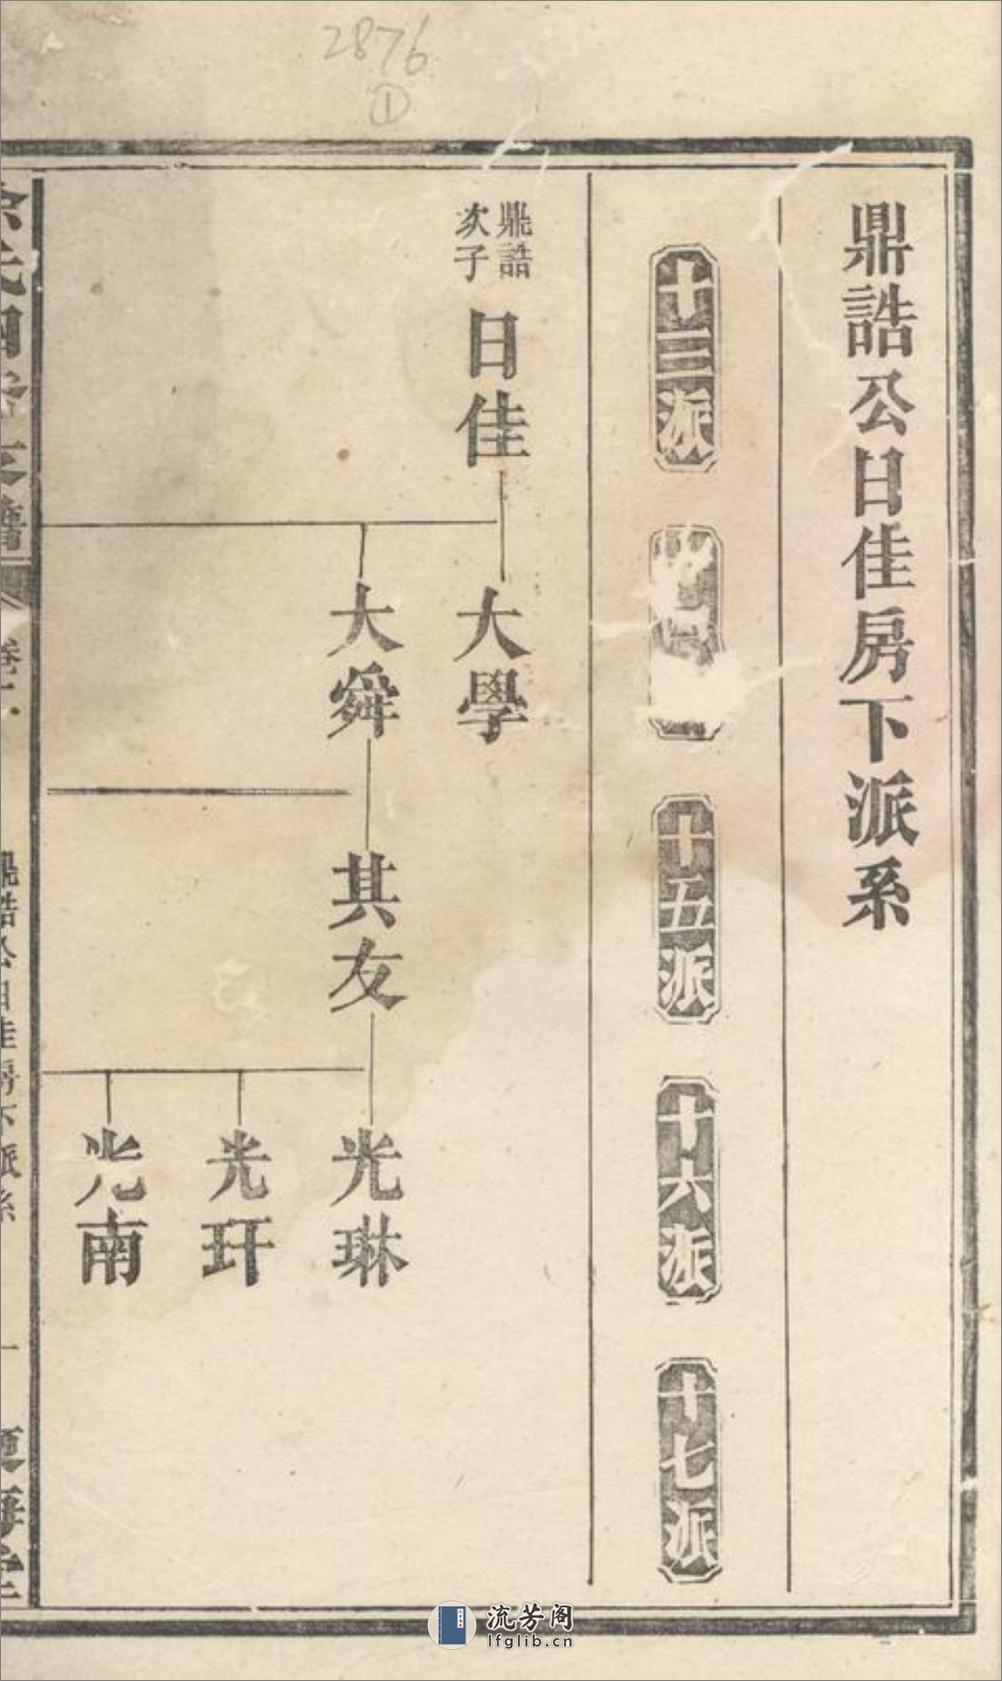 2876
①
鼎誥公日佳房下派系
十三派
十五派
十六派
十七派
鼎誥
次子
日佳
大學
大舜
其友
光琳
光玕
光南
鼎誥公日佳房下派系
一
流芳阁
lfglib.cn